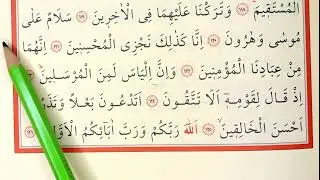 الْمُسْتَقِيمَ ﴿١١٨﴾ وَتَرَكْنَا عَلَيْهِمَا فِى الْاٰخِرِينَ ﴿١١٩﴾ سَلَامٌ عَلٰى
مُوسٰى وَهٰرُونَ ﴿١٢٠﴾ اِنَّا كَذٰلِكَ نَجْزِى الْمُحْسِنِينَ ﴿١٢١﴾ اِنَّهُمَا
مِنْ عِبَادِنَا الْمُؤْمِنِينَ ﴿١٢٢﴾ وَاِنَّ اِلْيَاسَ لَمِنَ الْمُرْسَلِينَ ﴿١٢٣﴾
اِذْ قَالَ لِقَوْمِهٖٓ اَلَا تَتَّقُونَ ﴿١٢٤﴾ اَتَدْعُونَ بَعْلًا وَتَذَ
اَحْسَنَ الْخَالِقِينَ ﴿١٢٥﴾ اَللّٰهَ رَبَّكُمْ وَرَبَّ اٰبَٓائِكُمُ الْاَوَّ ﴿١٢٦﴾